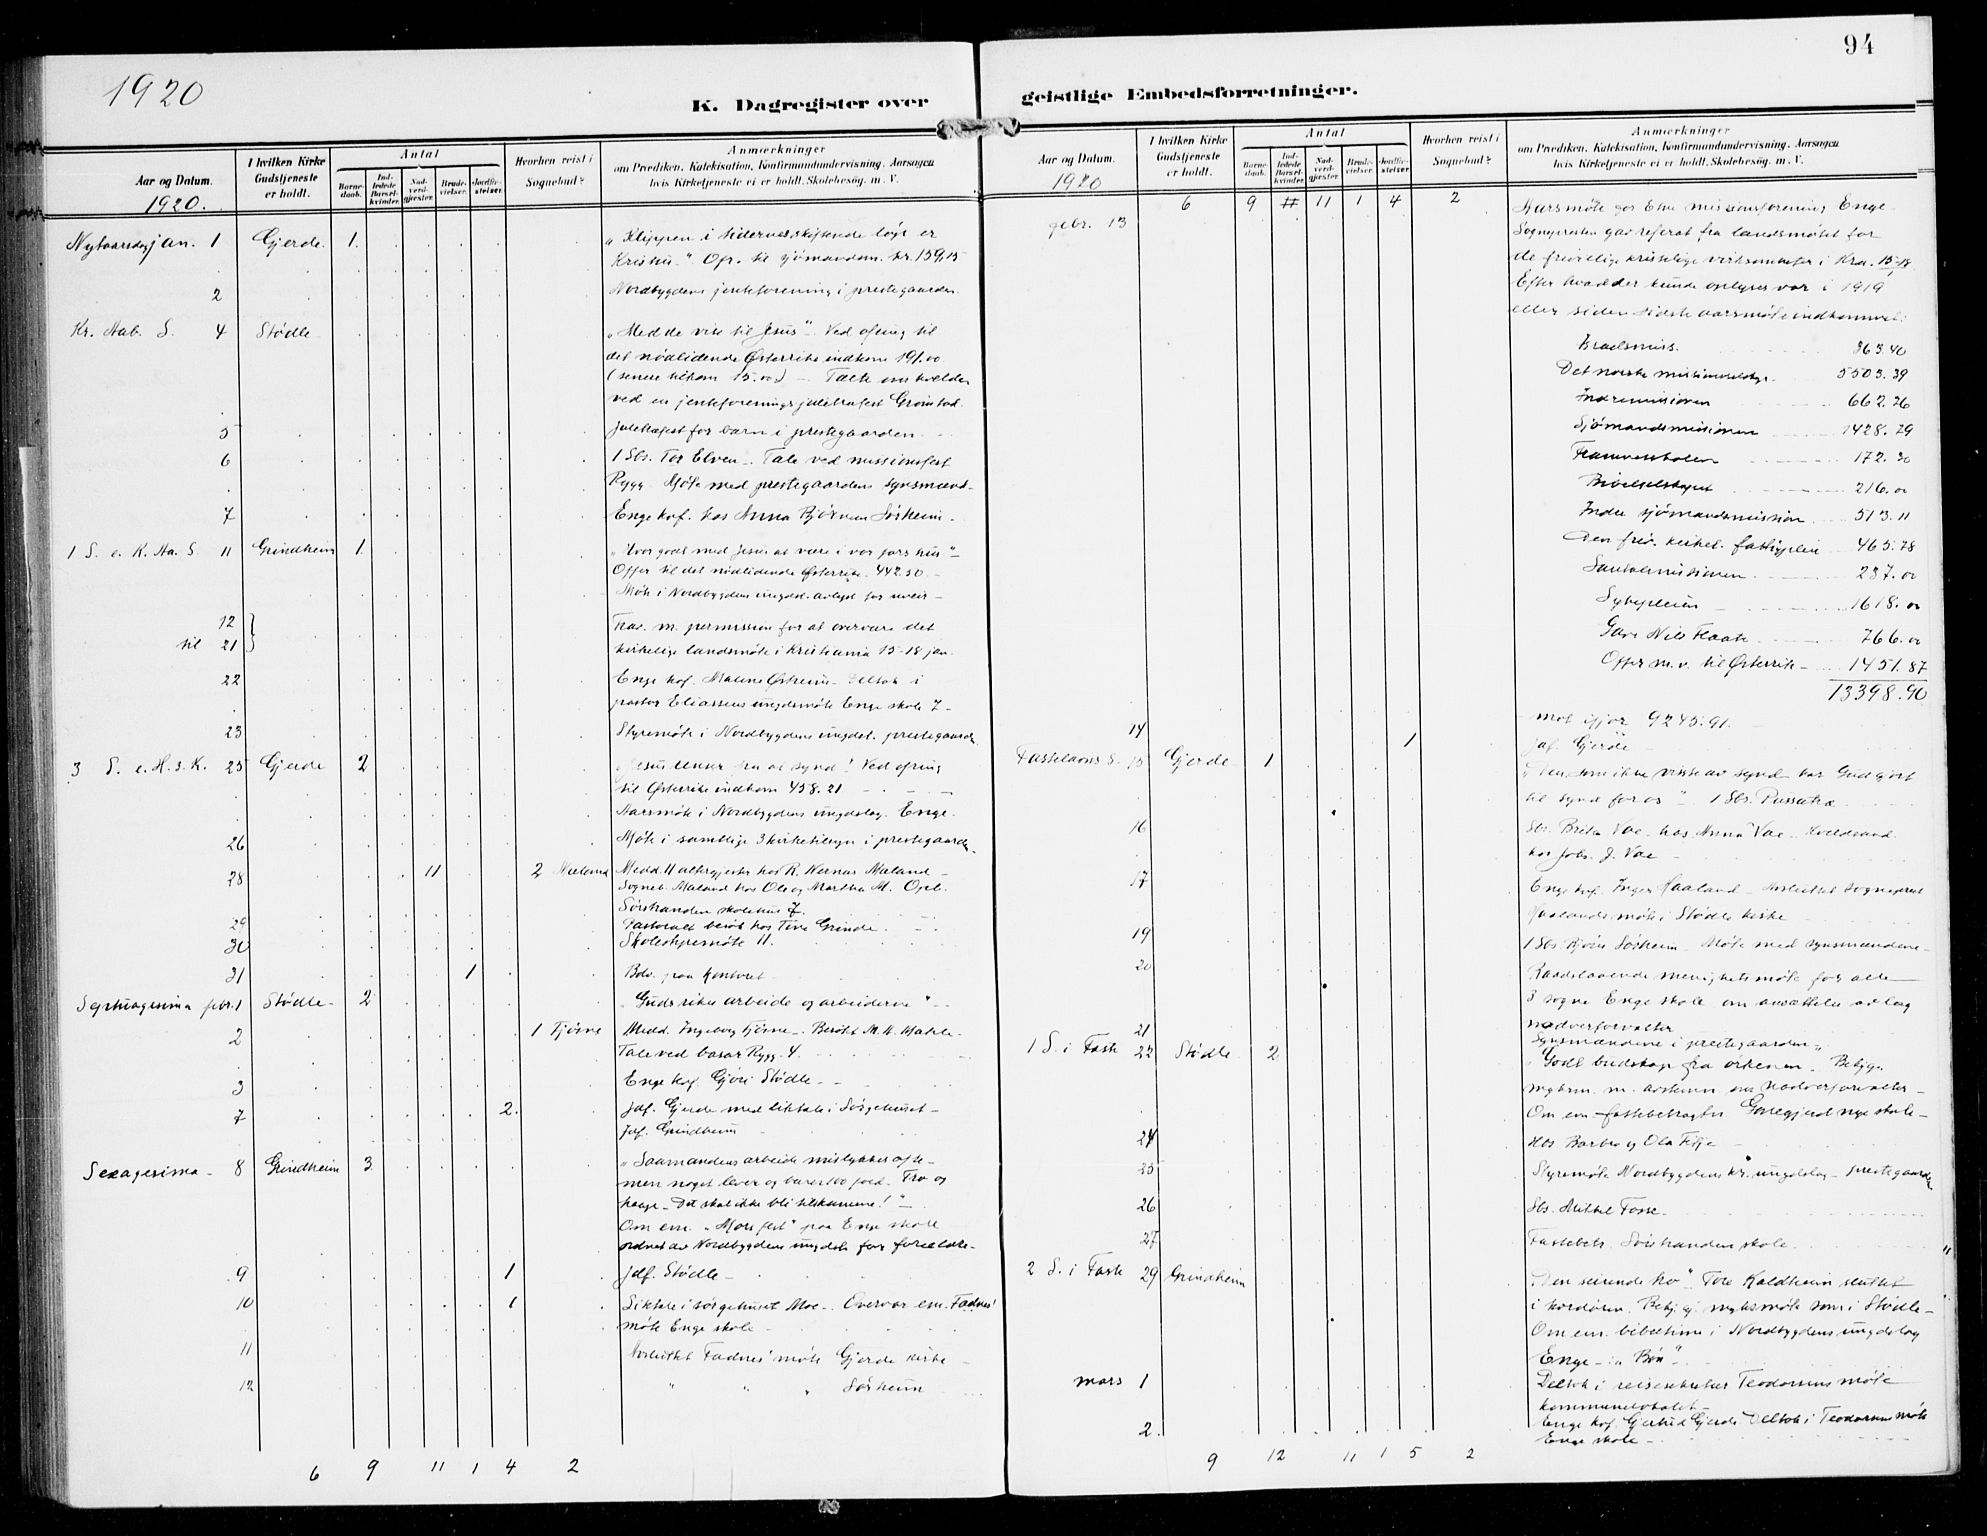 94
1920
K. Dagregister over geistlige Embedsforretninger.
Aar og Datum. 1920.
I hvilken Kirke Gudstjeneste er holdt.
Antal
Barnedaab.
Indledede Barselkvinder.
Nadverdgjester.
Brudevielser.
Jordfæstelser.
Hvorhen reist i Sognebud?
Anmærkninger
om Prædiken, Katekisation, Konfirmandundervisning, Aarsagen
hvis Kirketjeneste ei er holdt, Skolebesøg, m. V.
Nytaarsdag jan. 1 Gjerde. 1. „Klippen i tidernes skiftende løp er
Kristus." Ofr. til sjömandsm. kr. 159,15
2 Nordbygdens jenteforening i prestegaarden.
Kr. Aab. S. 4 Stødle „Med de vise til Jesus". Ved ofring til
det nödlidende Østerrike indkom 191.00
(senere tilkom 15.00) – Talte om kvelden
ved en jenteforenings juletræfest Grimstad.
5 Juletræfest for barn i prestegaarden.
6 1 Sbs. Tor Elven. Tale ved missionsfest
Rygg. Møte med prestegaardens synsmænd.
7 Enge kof. hos Anna Bjørnsen Sörheim.
1 S. e. K. Aa. S. 11 Grindheim 1. „Hvor godt med Jesus at være i vor fars hus"
Offer til det nödlidende Østerrike 442.50.
Møte i Nordbygdens ungdsl. avlyst for uveir –
12 til 21 Trav. m. permission for at overvære det
kirkelige landsmöte i Kristiania 15–18 jan.
22 Enge kof. Malene Østheim. Deltok i
pastor Eliassens ungdsmöte Enge skole 7
23 Styremöte i Nordbygdens ungdsl. prestegaarden
3 S. e. H. 3 K. 25 Gjerde 2 „Jesus renser fra al synd! Ved ofring
til Østerrike indkom 458.21
Aarsmöte i Nordbygdens ungdslag. Enge.
26 Möte i samtlige 3 kirketilsyn i prestegaarden.
28 11 2 Mæland Medd. 11 altergjester hos R. Mæland
Sogneb. Mæland hos Ole og Martha M. Opl.
Sörstranden skolehus 7.
29 Pastoralt besök hos Tine Grinde.
30 Skolestyremöte 11.
31 1 Bdv. paa kontoret
Septuagesima febr. 1 Stødle 2 „Guds rikes arbeide og arbeiderne"
2 1 Fjösne Medd. Ingeborg Fjösne. Besökt
Tale ved basar Rygg. 4.
3 Enge kof. Gjöri Stødle.
7 2. Jdf. Gjerde med liktale i Sörgehuset
Jdf. Grindheim
Sexagesima 8 Grindheim 3 „Saamandens arbeide mislykkes ofte –
men noget lever og bærer 100 fold. Tro og
haap – Det skal ikke bli tilskamme!"
Om em. „Morsfest" paa Enge skole
ordnet av Nordbygdens ungdsl. for forældre.
9 1 Jdf. Stødle
10 1 Liktale i sörgehuset Moe. Overvar em. Fadnes'
möte Enge skole
11 Avsluttet Fadnes' möte Gjerde kirke
12 " " " Sörheim
6 9 11 1 4 2
Aar og Datum. 1920
I hvilken Kirke Gudstjeneste er holdt.
Antal
Barnedaab.
Indledede Barselkvinder.
Nadverdgjester.
Brudevielser.
Jordfæstelser.
Hvorhen reist i Sognebud?
Anmærkninger
om Prædiken, Katekisation, Konfirmandundervisning, Aarsagen
hvis Kirketjeneste ei er holdt, Skolebesøg, m. V.
6 9 # 11 1 4 2
febr. 13 Aarsmöte for Etne missionsforening Enge.
Sognepresten gav referat fra landsmötet for
de frivillige kristelige virksomheter i Kra. 15–18/1
Efter hvad der kunde oplyses var i 1919
eller siden sidste aarsmöte indkommet:
Israelsmiss. 363.40
Det norske missionsselskap. 5503.39
Indremissionen 662.26
Sjömandsmissionen 1428.79
172.30
Bibelselskapet 216.00
Indre sjömandsmission 513.11
Den friv. kirkel. fattigpleie 465.78
Santalmissionen 237.00
Sykepleien 1618.00
Gave Nils Flaate 766.00
Offer m. v. til Østerrike 1451.87
13398.90
mot ifjor 9245.91.
14 1 Jdf. Gjerde
Fastelavns S. 15 Gjerde 1 „Den som ikke visste av synd har Gud gjort
til synd for os" 1 Sbs.
16 Sbs. Brita Vae hos Anna Vae. Kveldsand.
hos Johs. J. Vae
17 Enge kof. Inger Haaland. Avsluttet sogneprest
Vaalands möte i Stødle kirke
19 1 Sbs. Sörheim. Möte med synsmændene
20 Raadslaaende menighetsmöte for alle
3 sogne Enge skole om ansættelse av lag
nadverforvalter
21 Synsmændene i prestegaarden
1 S. i Faste 22 Stødle 2 „Godt budskap fra örkenen. Bebygg.
m. avstemn. om nadverforvalter
Om em. fastebetragtn. Gonegjerd nye skole
24 Hbs. Barbro og Ola Tilje
25 Styremöte Nordbygdens kr. ungdslag – prestegaarden
26 Sbs. Mikkel Tosse.
27 Fastebetr. Sörstranden skole.
2 S. i Faste 29 Grindheim „Den seirende tro". Tore Kaldheim sluttet
i kordören. möte som i Stødle
Om em. bibeltime i Nordbygdens ungdslag
Enge – „Bön".
mars 1 Deltok i reisesekretær Teodorsens möte
kommunelokalet
2. Enge kof. Gjertrud Gjerde. Deltok i Teodorsens möte
Enge skole
9 12 11 1 5 2